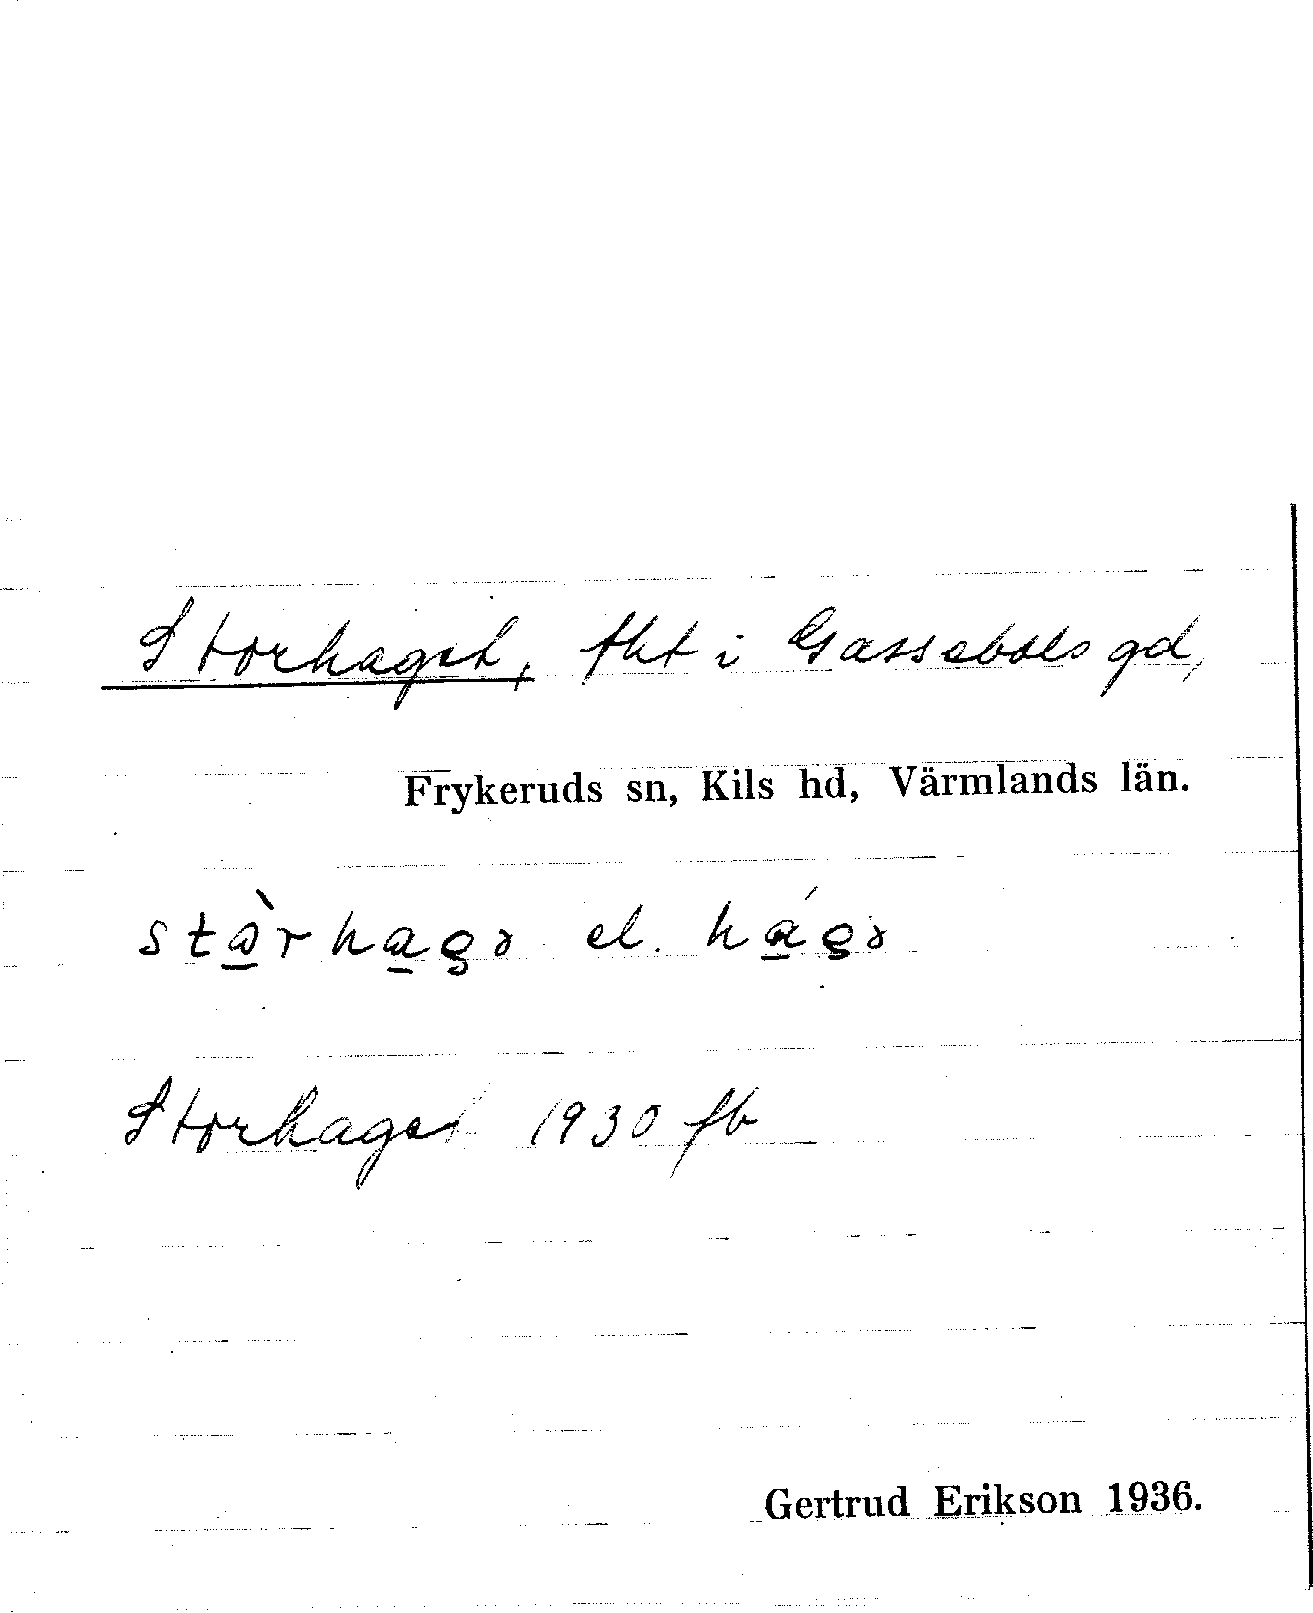 Storhaget, tht i Gassebols gd,
Frykeruds sn, Kils hd, Värmlands län.
stàrhagə el. hágə
Storhaget 1930 fb
Gertrud Erikson 1936.